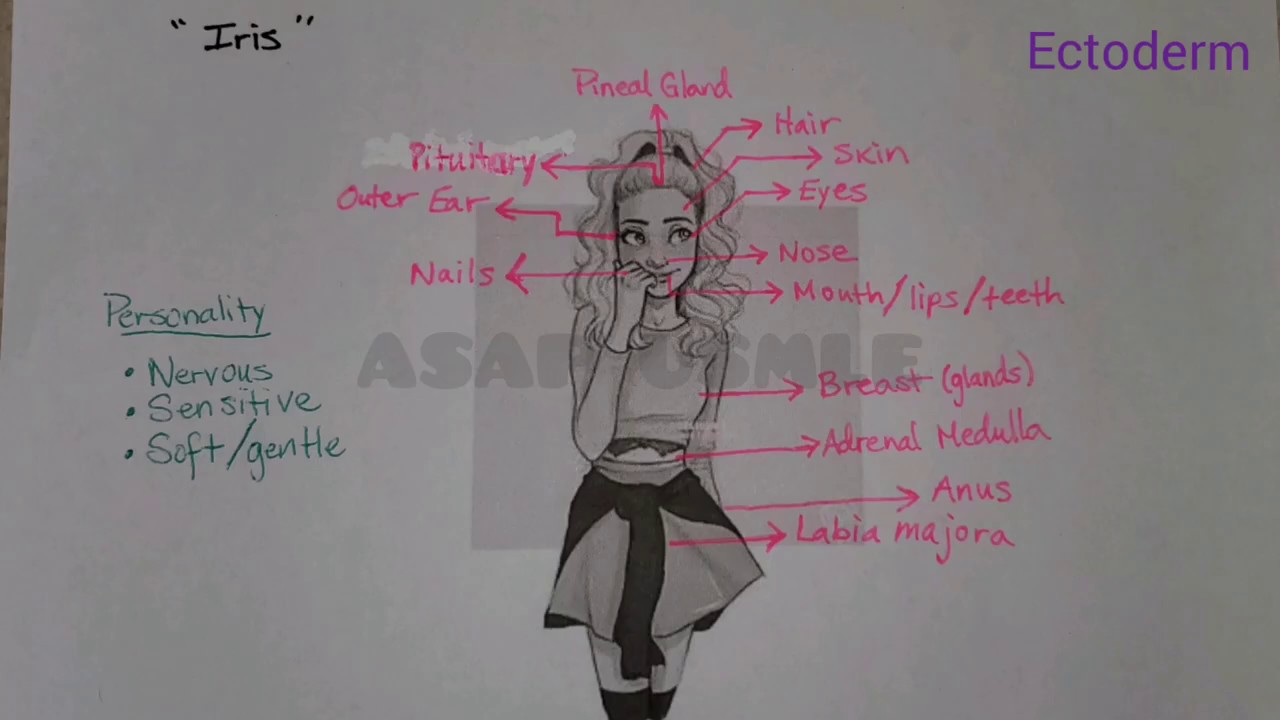 “Iris”
Ectoderm
Pineal Gland
Hair
Pituitary
Skin
Outer Ear
Eyes
Nails
Nose
Mouth/lips/teeth
Personality
• Nervous
• Sensitive
• Soft/gentle
ASAP USMLE
Breast (glands)
Adrenal Medulla
Anus
Labia majora